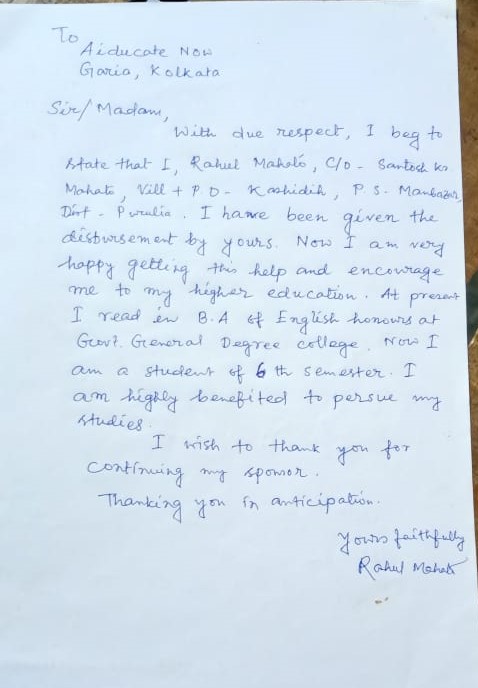 To
Aiducate Now
Garia, Kolkata
Sir/Madam,
With due respect, I beg to
state that I, Rahul Mahato, C/O - Santosh Kr.
Mahato, Vill + P O - Kashidih, P. S. - Manbazar,
Dist - Purulia. I have been given the
disbursement by yours. Now I am very
happy getting this help and encourage
me to my higher education. At present
I read in B.A of English honours at
Govt. General Degree college. Now I
am a student of 6 th semester. I
am highly benefited to persue my
studies.
I wish to thank you for
continuing my sponsor.
Thanking you in anticipation.
Yours faithfully
Rahul Mahato